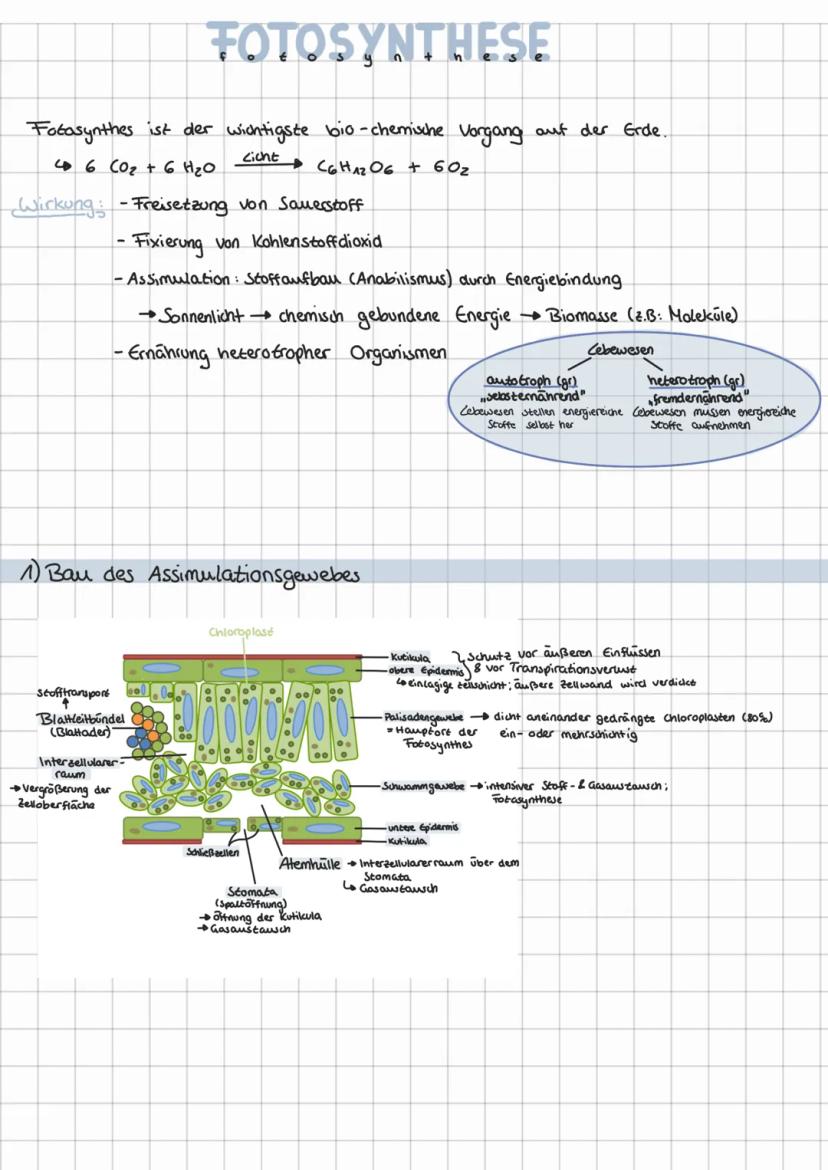 FOTOSYNTHESE
fotosynthese
Fotosynthes ist der wichtigste bio-chemische Vorgang auf der Erde.
↳ 6 CO₂ + 6 H₂O Licht → C₆H₁₂O₆ + 6O₂
Wirkung: - Freisetzung von Sauerstoff
- Fixierung von Kohlenstoffdioxid
- Assimulation: Stoffaufbau (Anabilismus) durch Energiebindung
→ Sonnenlicht → chemisch gebundene Energie → Biomasse (z.B: Moleküle)
- Ernährung heterotropher Organismen
Lebewesen
autotroph (gr)
„selbsternährend"
Lebewesen stellen energiereiche
Stoffe selbst her
heterotroph (gr)
„fremdernährend"
Lebewesen müssen energiereiche
Stoffe aufnehmen
1) Bau des Assimulationsgewebes
Chloroplast
Kutikula
obere Epidermis
Schutz vor äußeren Einflüssen
& vor Transpirationsverlust
↳ einlagige Zellschicht; äußere Zellwand wird verdickt
Stofftransport
↑
Blattleitbündel
(Blattader)
Palisadengewebe → dicht aneinander gedrängte Chloroplasten (80%)
= Hauptort der
Fotosynthes
ein- oder mehrschichtig
Interzellularer-
raum
→ Vergrößerung der
Zelloberfläche
Schwammgewebe → intensiver Stoff- & Gasaustausch;
Fotosynthese
untere Epidermis
Kutikula
Schließzellen
Atemhülle → Interzellularerraum über dem
Stomata
↳ Gasaustausch
Stomata
(Spaltöffnung)
→ Öffnung der Kutikula
→ Gasaustausch